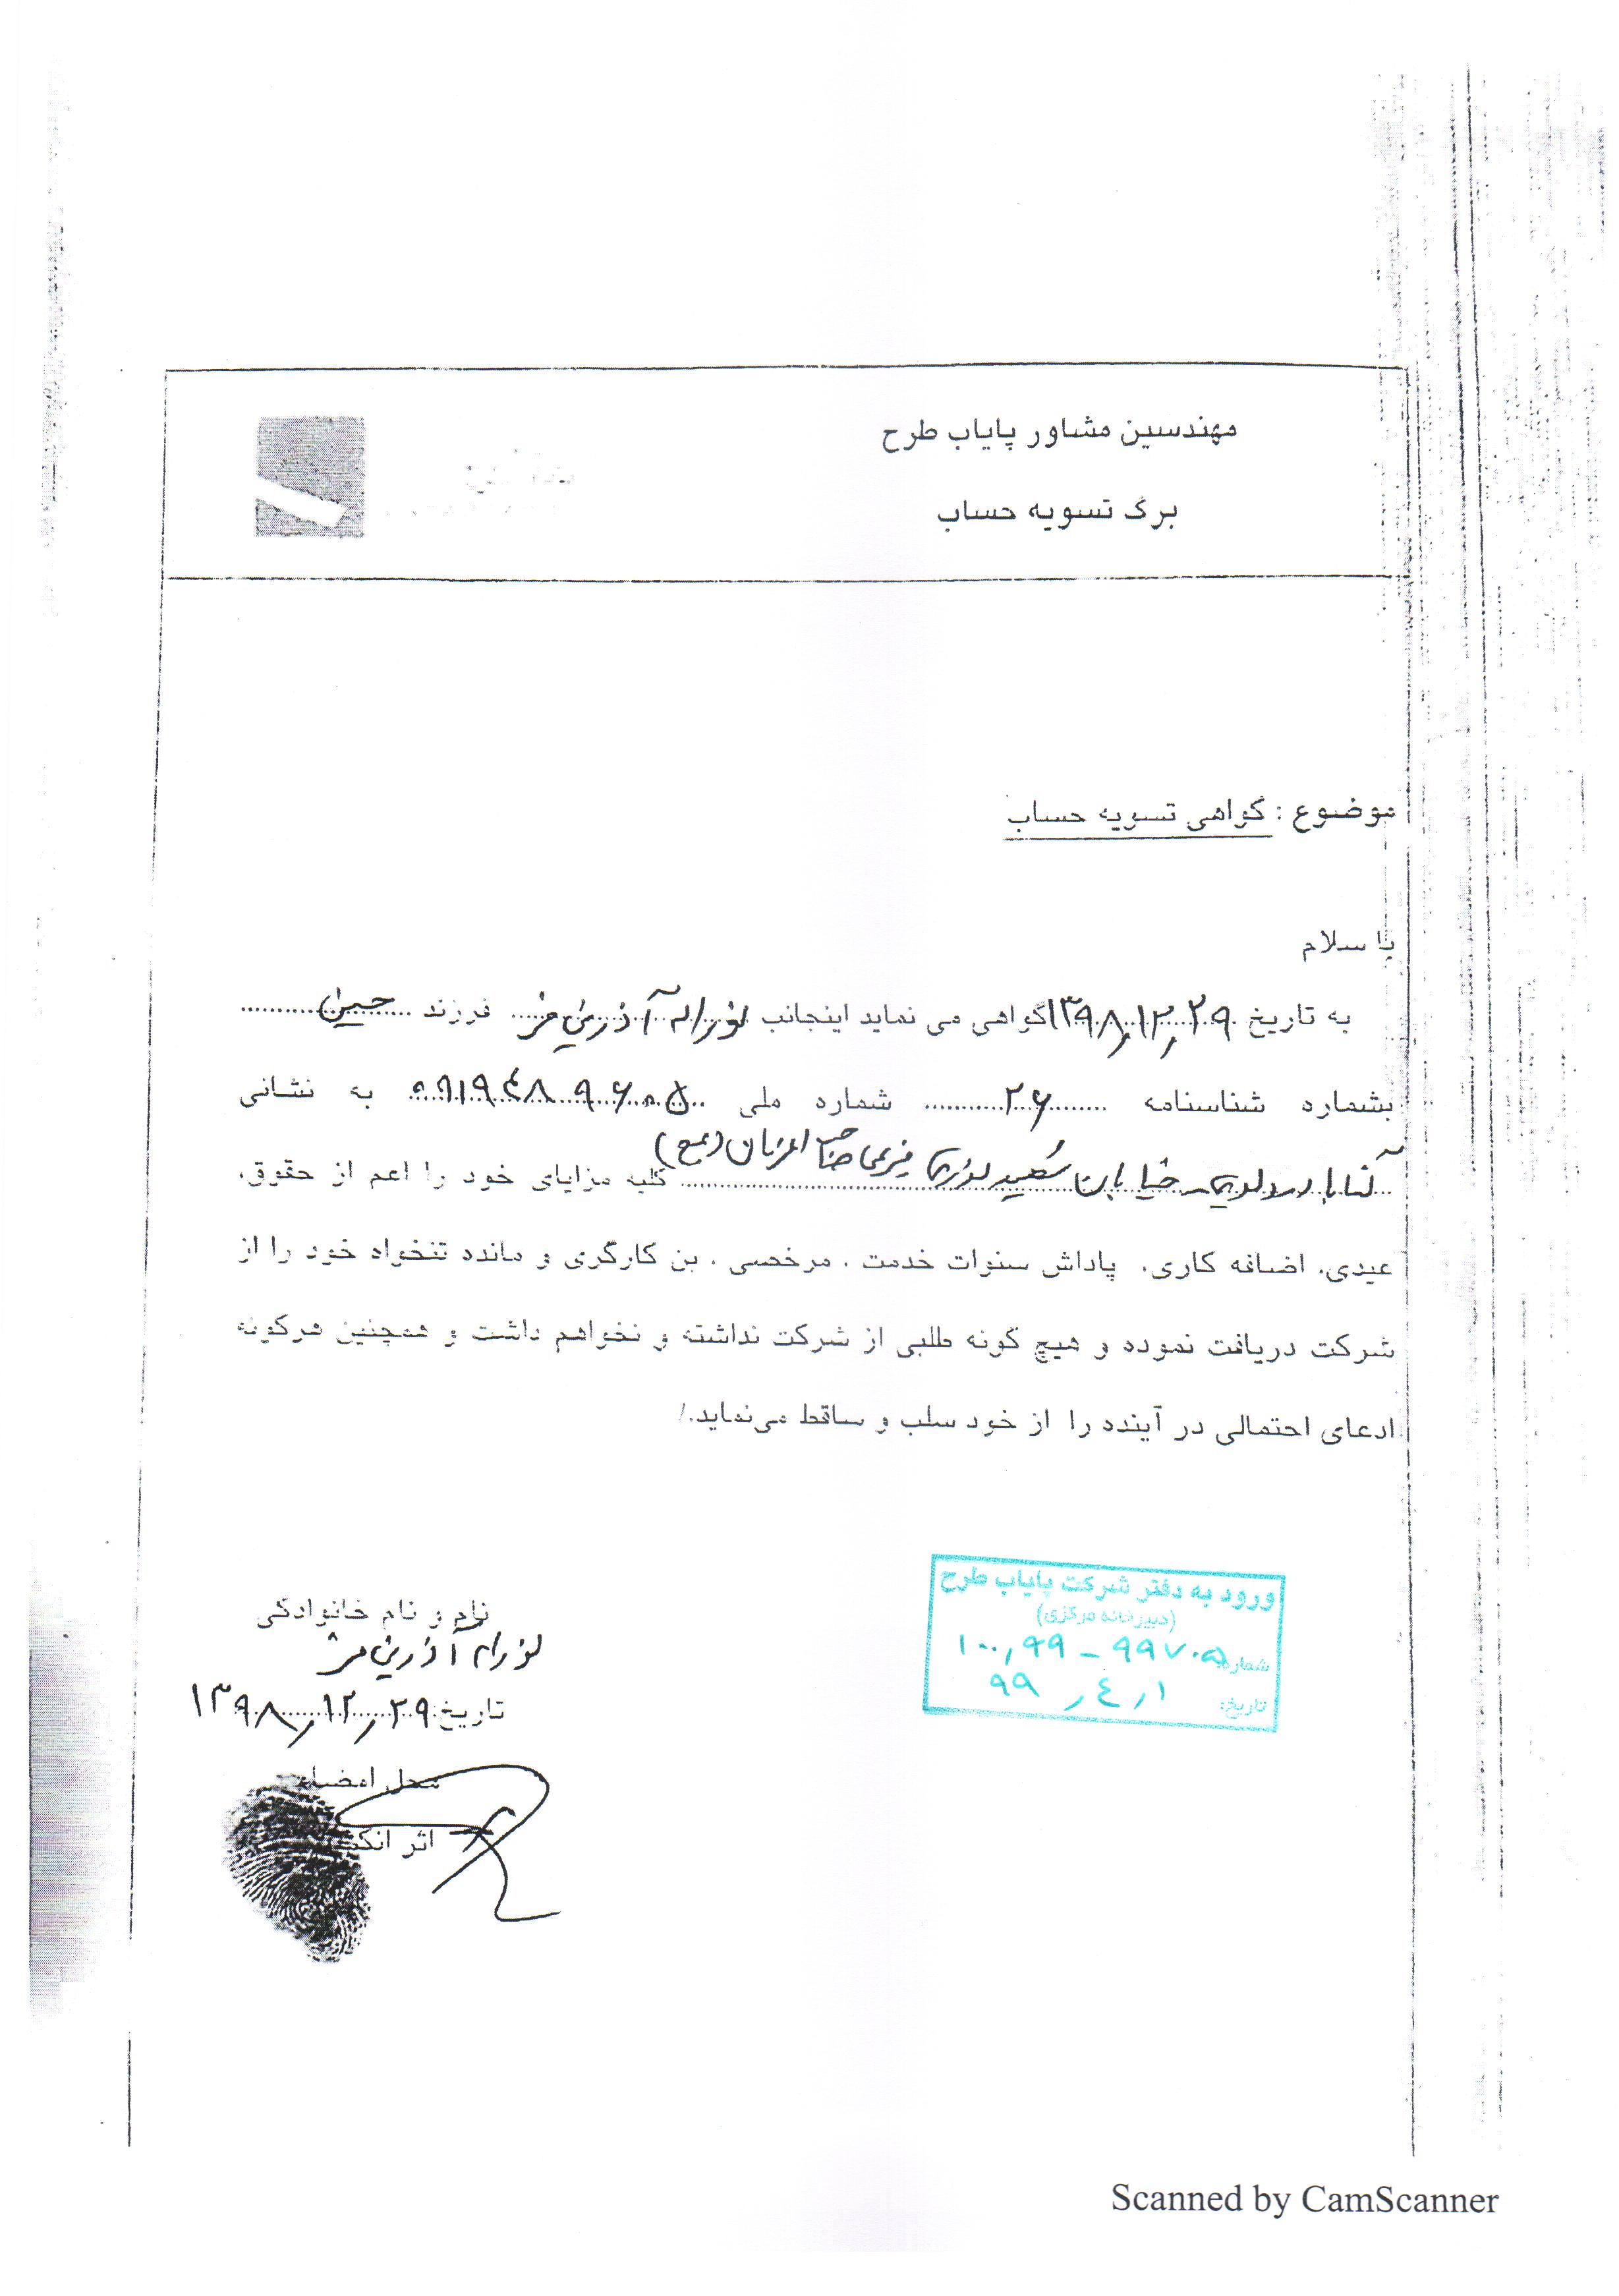 مهندسین مشاور پایاب طرح
برگ تسویه حساب
موضوع : گواهی تسویه حساب
با سلام
به تاریخ ۱۳۹۸/۱۲/۲۹ گواهی می نماید اینجانب آذرین فر فرزند حسین
بشماره شناسنامه ۲۶ شماره ملی ۰۹۱۹۴۸۹۶۰۵ به نشانی
خیابان شهید کلیه مزایای خود را اعم از حقوق،
عیدی، اضافه کاری، پاداش سنوات خدمت ، مرخصی ، بن کارگری و مانده تنخواه خود را از
شرکت دریافت نموده و هیچ گونه طلبی از شرکت نداشته و نخواهم داشت و همچنین هرگونه
ادعای احتمالی در آینده را از خود سلب و ساقط می‌نماید./
ورود به دفتر شرکت پایاب طرح
(دبیرخانه مرکزی)
شماره: ۱۰۰,۹۹ - ۹۹۷۰۵
تاریخ: ۹۹/۴/۱
نام و نام خانوادگی
آذرین فر
تاریخ ۱۳۹۸/۱۲/۲۹
محل امضاء
اثر
Scanned by CamScanner